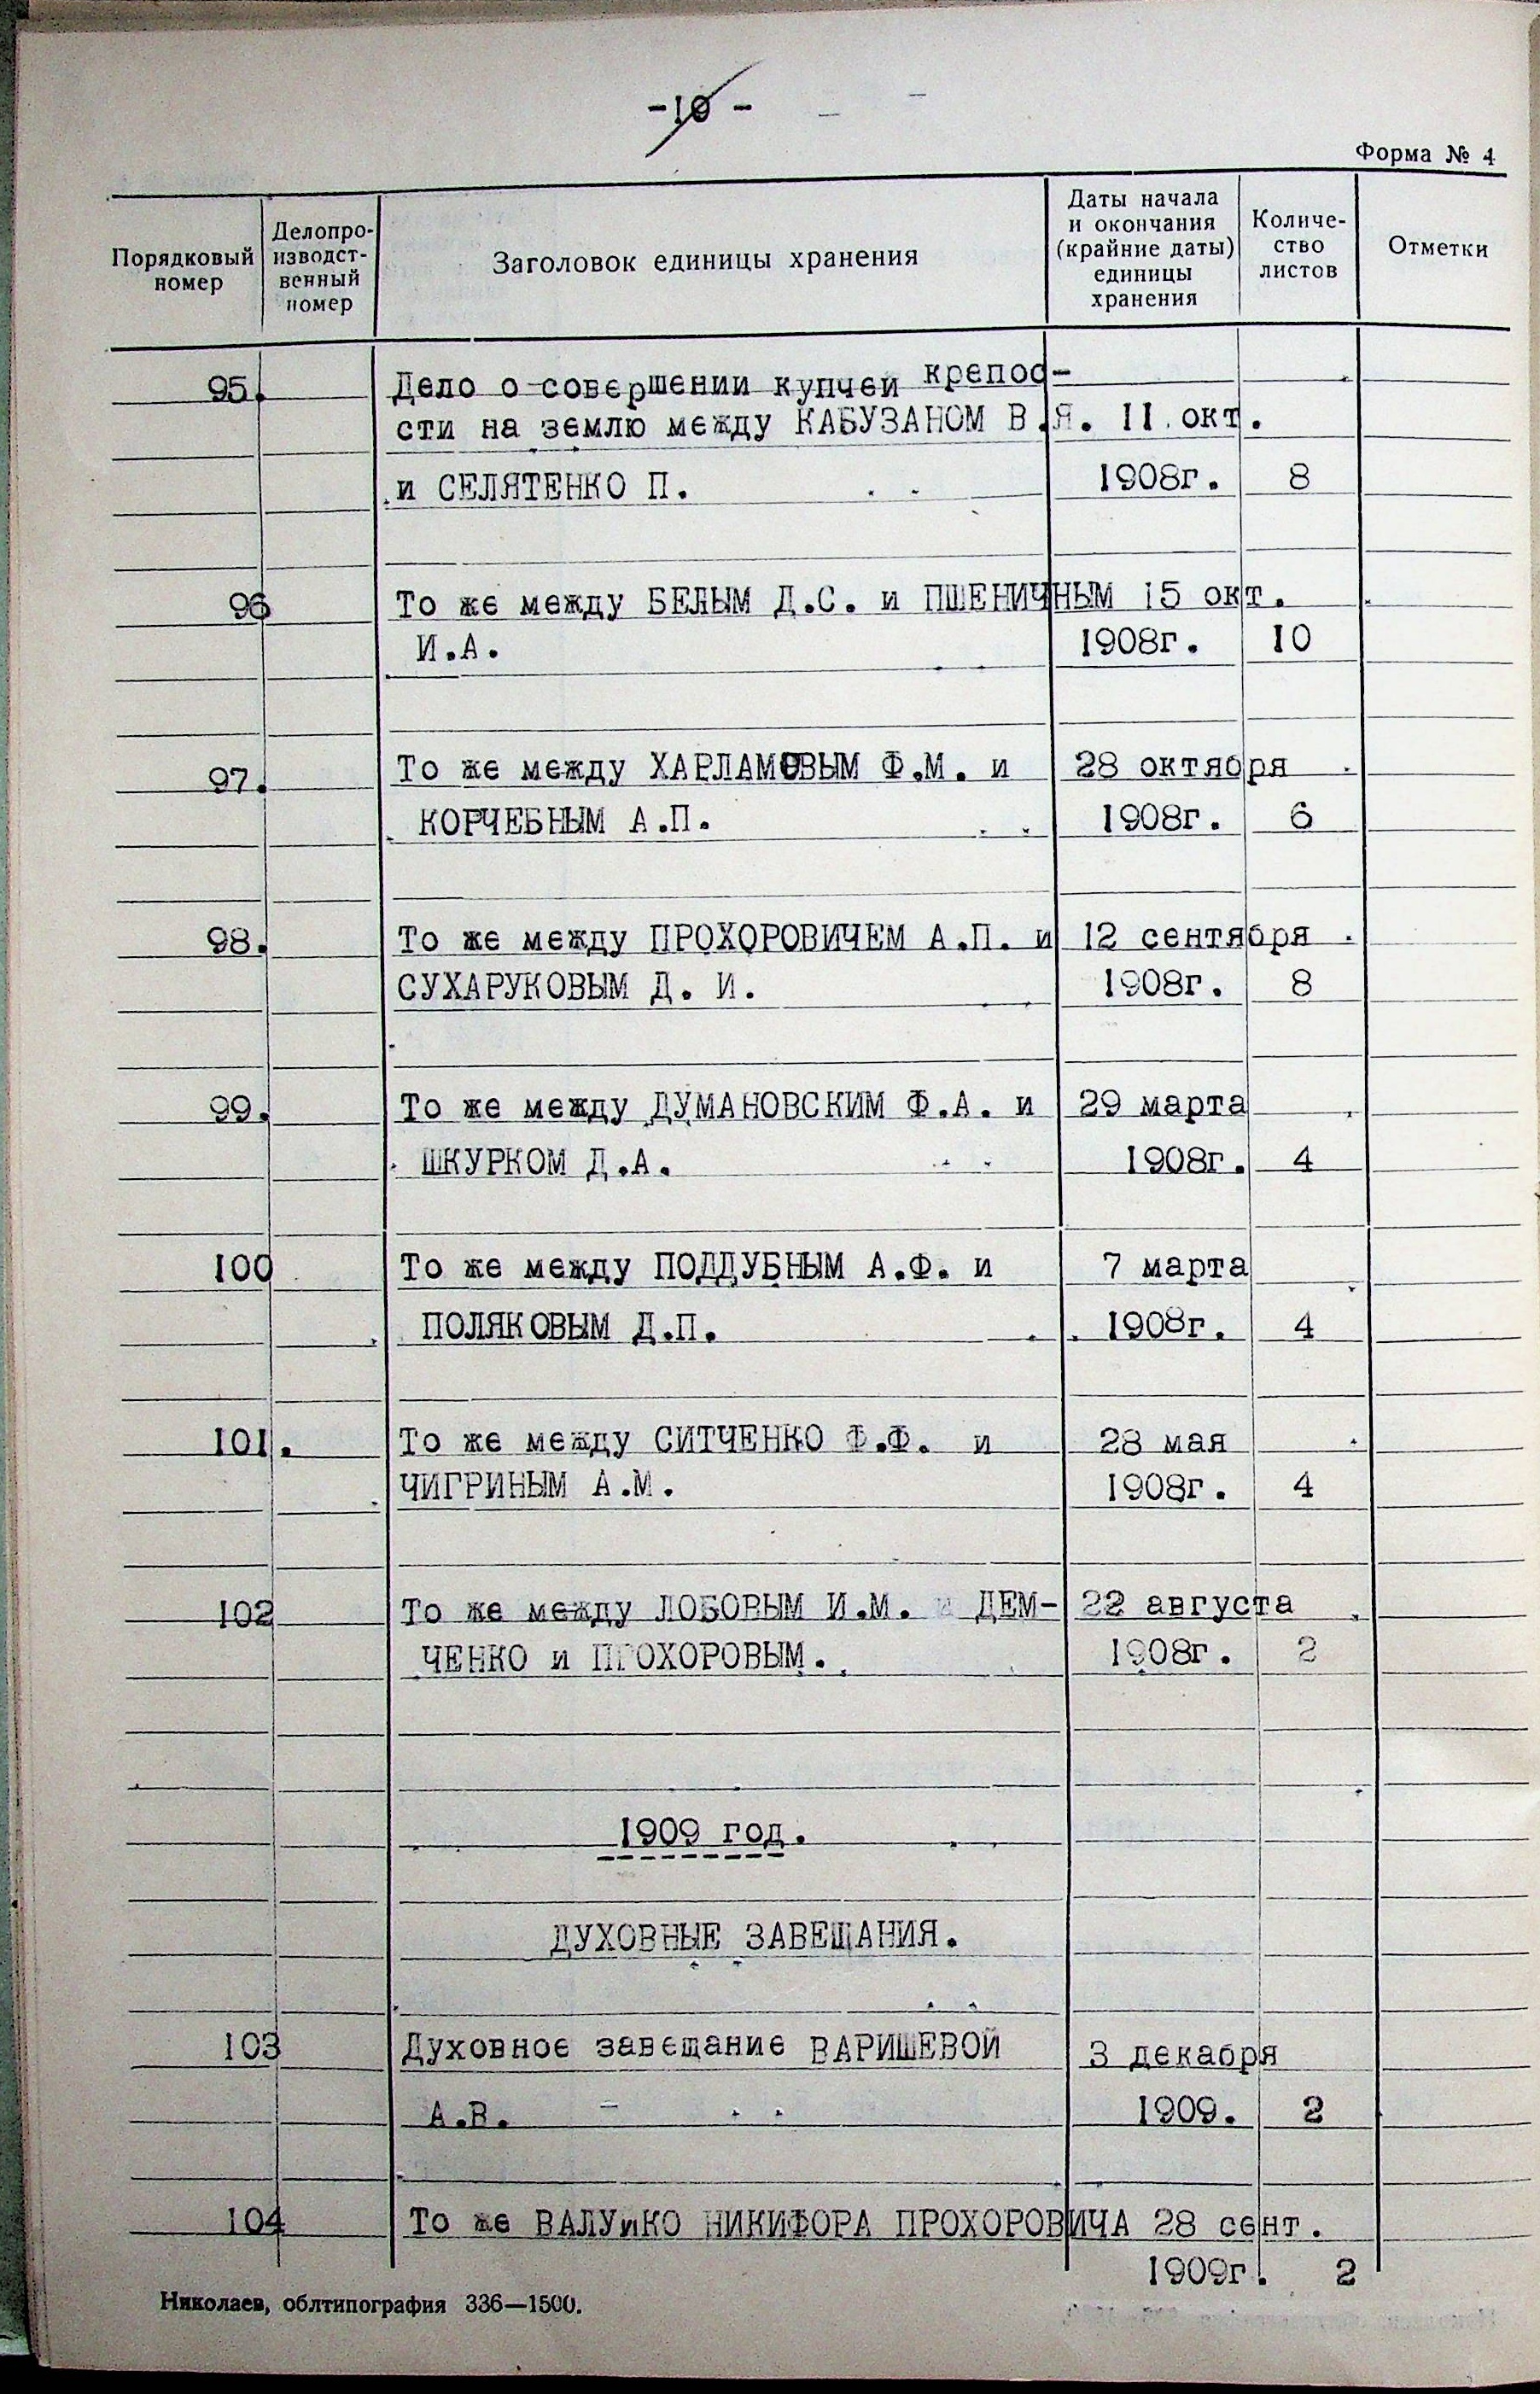 -10 -
Форма № 4
Порядковый номер
Делопро-
изводст-
венный
номер
Заголовок единицы хранения
Даты начала
и окончания
(крайние даты)
единицы
хранения
Количе-
ство
листов
Отметки
95. Дело о совершении купчей крепос-
сти на землю между КАБУЗАНОМ В.Я. 11 окт.
и СЕЛЯТЕНКО П. 1908г. 8
96 То же между БЕЛЫМ Д.С. и ПШЕНИЧНЫМ 15 окт.
И.А. 1908г. 10
97. То же между ХАРЛАМОВЫМ Ф.М. и 28 октября
КОРЧЕБНЫМ А.П. 1908г. 6
98. То же между ПРОХОРОВИЧЕМ А.П. и 12 сентября
СУХАРУКОВЫМ Д. И. 1908г. 8
99. То же между ДУМАНОВСКИМ Ф.А. и 29 марта
ШКУРКОМ Д.А. 1908г. 4
100 То же между ПОДДУБНЫМ А.Ф. и 7 марта
ПОЛЯКОВЫМ Д.П. 1908г. 4
101. То же между СИТЧЕНКО Ф.Ф. и 28 мая
ЧИГРИНЫМ А.М. 1908г. 4
102 То же между ЛОБОВЫМ И.М. и ДЕМ-
22 августа
ЧЕНКО и ПРОХОРОВЫМ. 1908г. 2
1909 год.
ДУХОВНЫЕ ЗАВЕЩАНИЯ.
103 Духовное завещание ВАРИШЕВОЙ 3 декабря
А.В. 1909. 2
104 То же ВАЛУйКО НИКИФОРА ПРОХОРОВИЧА 28 сент.
1909г. 2
Николаев, облтипография 336—1500.